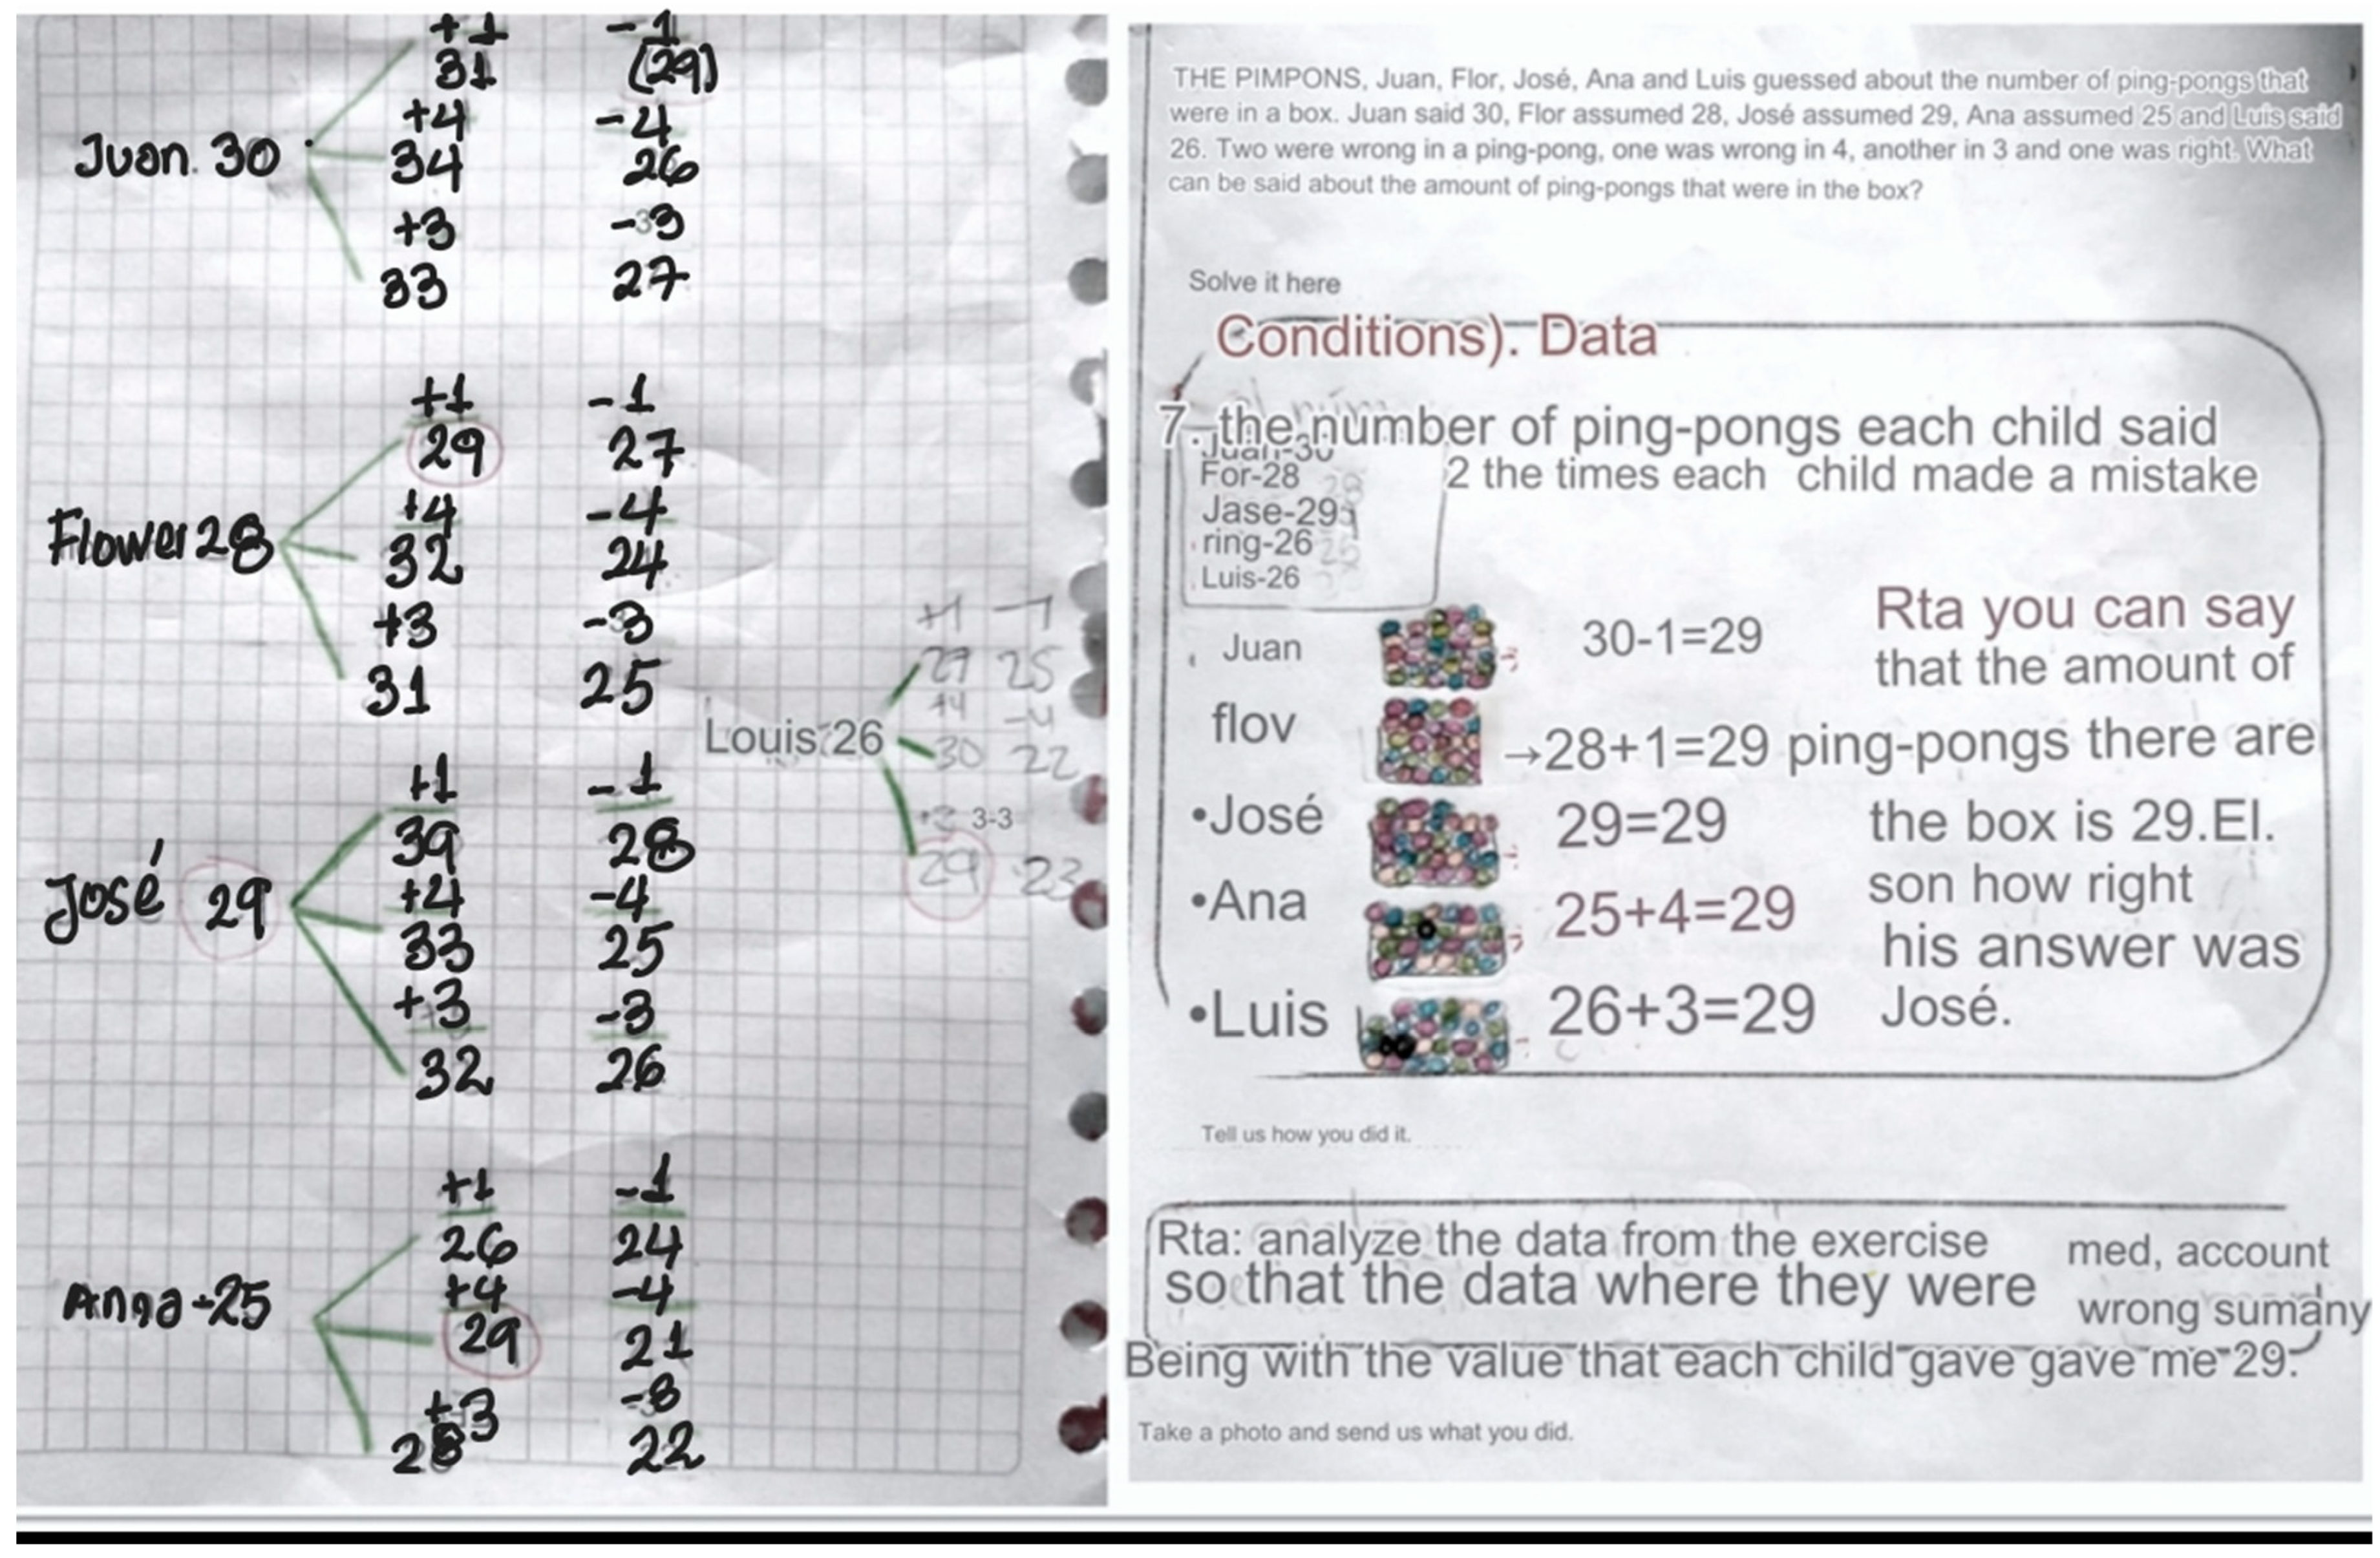 +1 -1
31 (29)
+4 -4
Juan. 30 34 26
+3 -3
33 27
+1 -1
29 27
+4 -4
Flower 28 32 24
+3 -3
31 25
+1 -1
39 28
+4 -4
José 29 33 25
+3 -3
32 26
+1 -1
26 24
+4 -4
Anna-25 29 21
+3 -8
28 22
+1 -1
27 25
+4 -4
Louis 26 30 22
3-3
29 23
THE PIMPONS, Juan, Flor, José, Ana and Luis guessed about the number of ping-pongs that
were in a box. Juan said 30, Flor assumed 28, José assumed 29, Ana assumed 25 and Luis said
26. Two were wrong in a ping-pong, one was wrong in 4, another in 3 and one was right. What
can be said about the amount of ping-pongs that were in the box?
Solve it here
Conditions). Data
7. the number of ping-pongs each child said
Juan-30
For-28 2 the times each child made a mistake
Jase-29
ring-26
Luis-26
Juan 30-1=29
flov →28+1=29
•José 29=29
•Ana 25+4=29
•Luis 26+3=29
Rta you can say
that the amount of
ping-pongs there are
the box is 29.El.
son how right
his answer was
José.
Tell us how you did it.
Rta: analyze the data from the exercise med, account
so that the data where they were wrong sumany
Being with the value that each child gave gave me 29.
Take a photo and send us what you did.